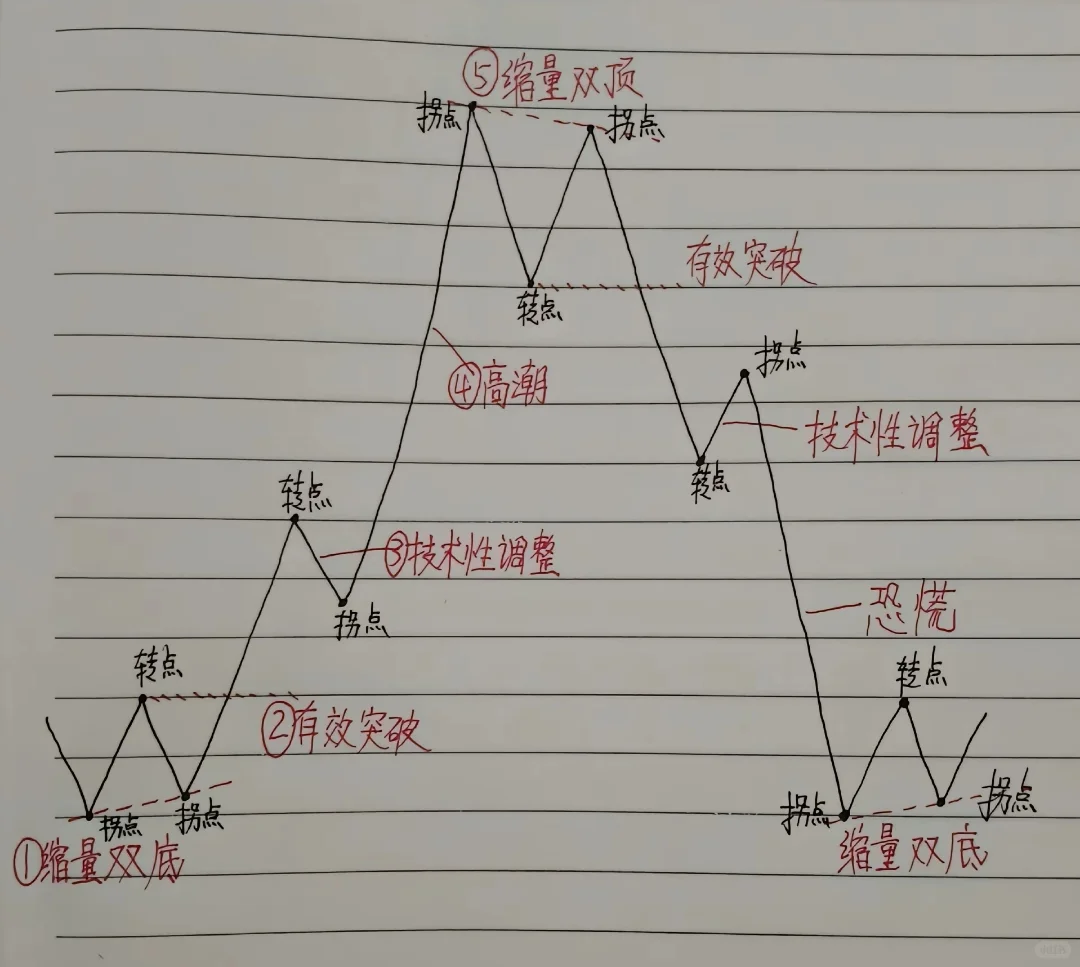 ⑤缩量双顶
拐点
拐点
有效突破
转点
拐点
④高潮
技术性调整
转点
转点
③技术性调整
拐点
恐慌
转点
转点
②有效突破
拐点
拐点
拐点
拐点
①缩量双底
缩量双底